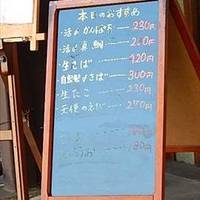 本日のおすすめ
活〆かんぱち 230円
活〆真鯛 230円
生さば 120円
自家製〆さば 300円
生たこ 230円
天使のえび 270円